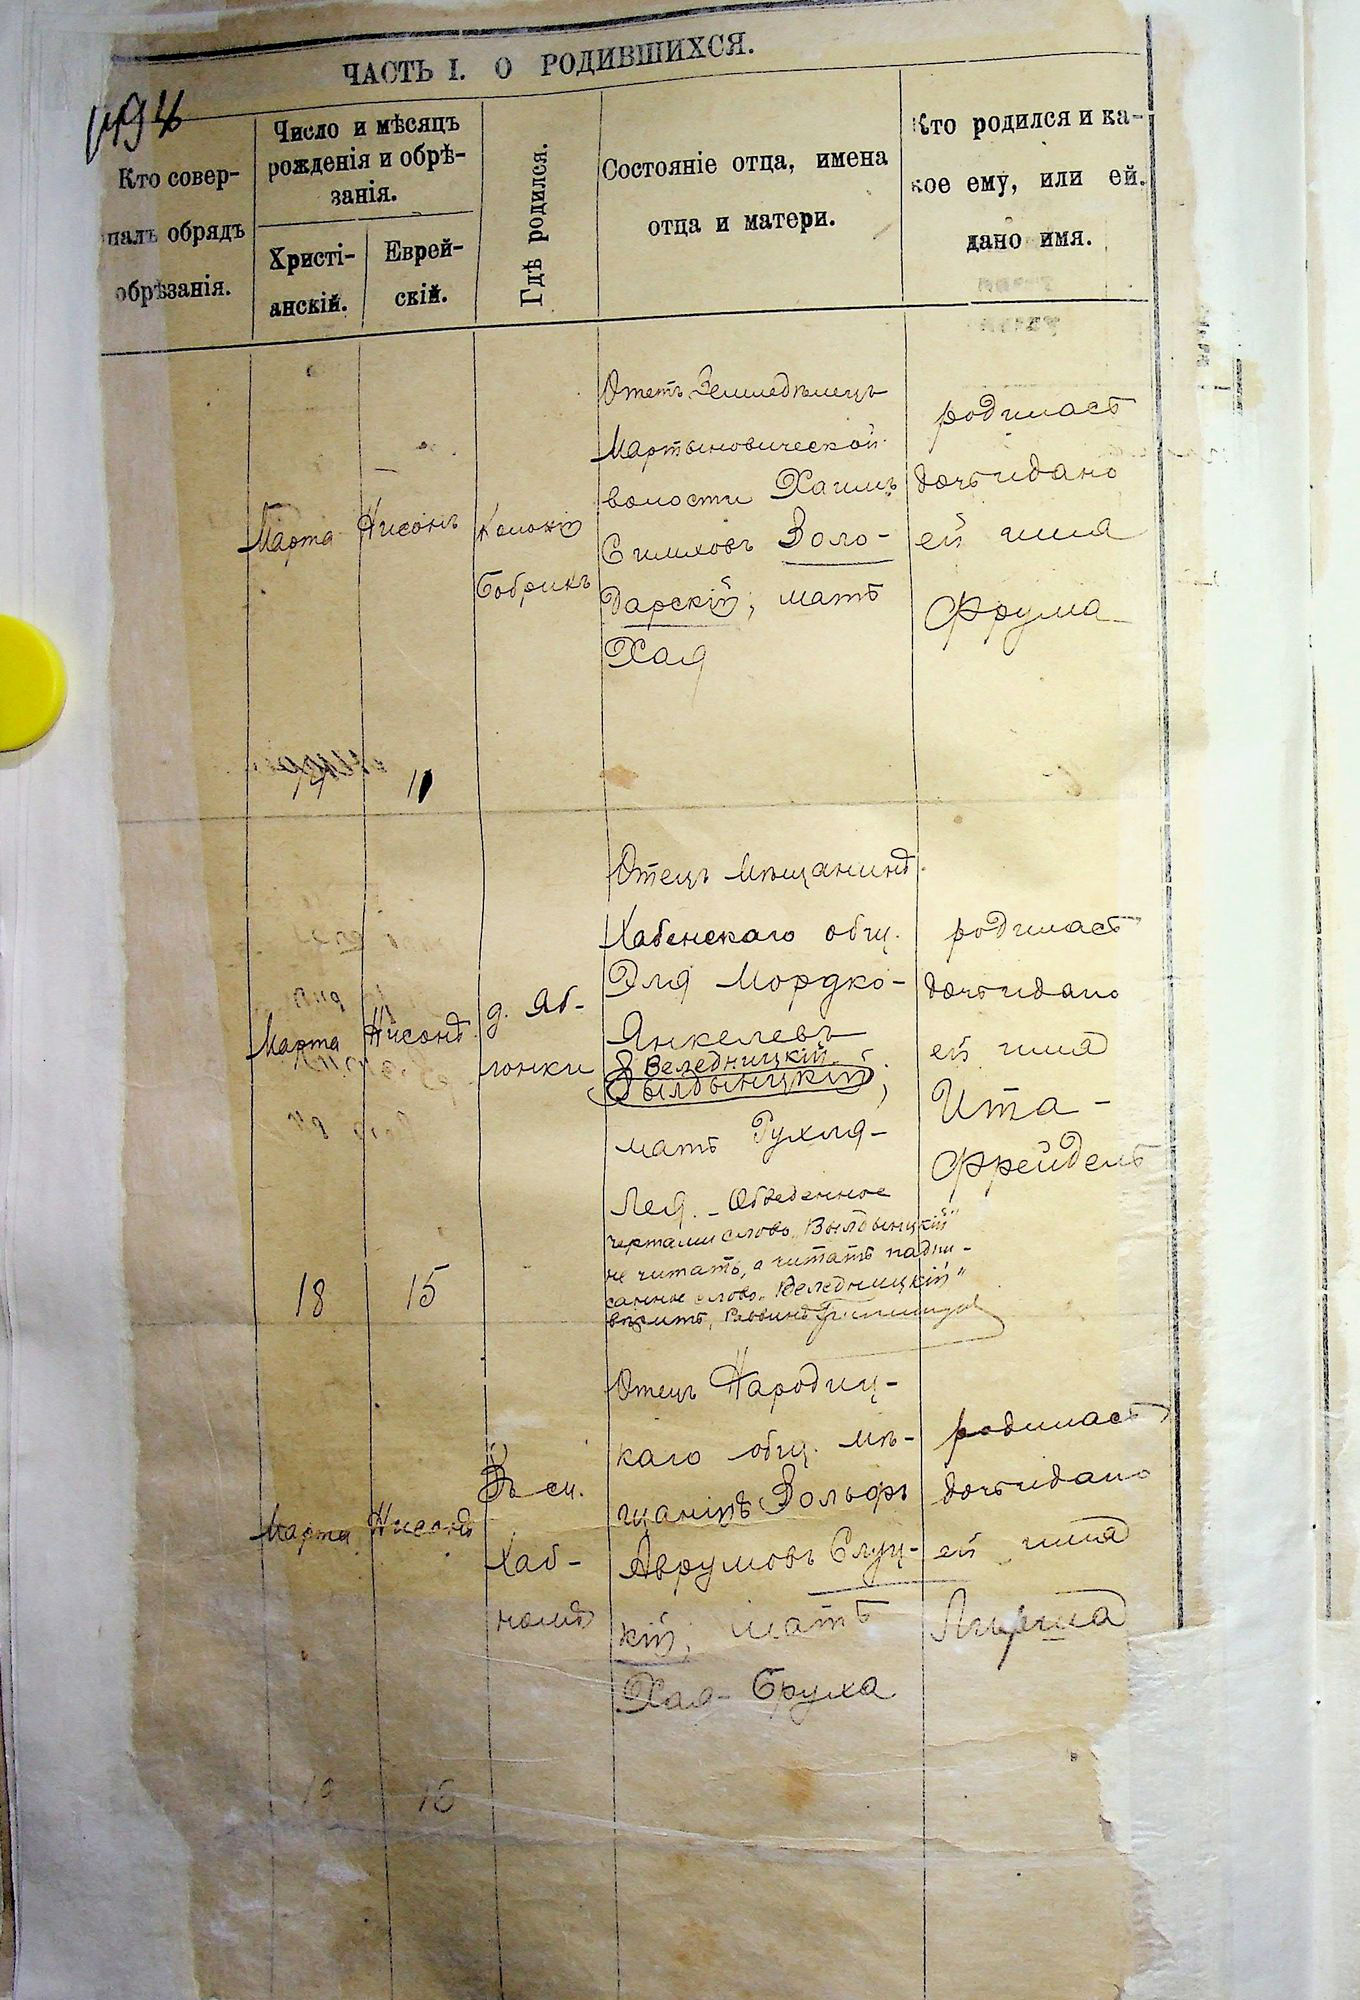 ЧАСТЬ I. О РОДИВШИХСЯ.
Кто совер-
шалъ обрядъ
обрѣзанія.
Число и мѣсяцъ
рожденія и обрѣ-
занія.
Христі-
анскій.
Еврей-
скій.
Гдѣ родился.
Состояніе отца, имена
отца и матери.
Кто родился и ка-
кое ему, или ей.
дано имя.
Марта
14
Нисонъ
11
Колонія
Бобрикъ
Отецъ Земледѣлецъ
Мартыновической
волости Хаимъ
Симховъ Воло-
дарскій; мать
Хая
родилась
дочь и дано
ей имя
Фрума
Марта
18
Нисонъ
15
д. Яб-
лонки
Отецъ Мѣщанинъ
Хабенскаго общ.
Эля Мордко-
Янкелевъ
Веледницкій
Вылдыницкій;
мать Рухля-
Лея. - Обведенное
чертами слово „Вылдыницкій"
не читать, а читать надпи-
санное слово „Веледницкій"
вѣрить, Раввинъ
родилась
дочь и дано
ей имя
Ита-
Фрейдель
Марта
19
Нисонъ
16
Въ с.
Хаб-
номъ
Отецъ Народиц-
каго общ. мѣ-
щанинъ Вольфъ
Аврумовъ Слуц-
кій; мать
Хая-Бруха
родилась
дочь и дано
ей имя